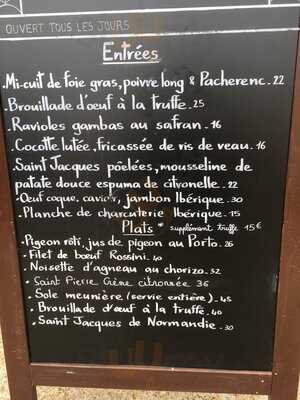 OUVERT TOUS LES JOURS
Entrées
.Mi-cuit de foie gras, poivre long & Pacherenc.22
.Brouillade d'œuf à la truffe.25
.Ravioles gambas au safran.16
.Cocotte lutée, fricassée de ris de veau.16
.Saint Jacques poêlées, mousseline de
patate douce espuma de citronelle.22
.Œuf coque, caviar, jambon Ibérique.30
.Planche de charcuterie Ibérique.15
Plats * supplément truffe 15€
.Pigeon rôti, jus de pigeon au Porto.26
.Filet de bœuf Rossini.40
.Noisette d'agneau au chorizo.32
.Saint Pierre Crème citronnée 36
.Sole meunière (servie entière).45
.Brouillade d'œuf à la truffe.40
.Saint Jacques de Normandie.30